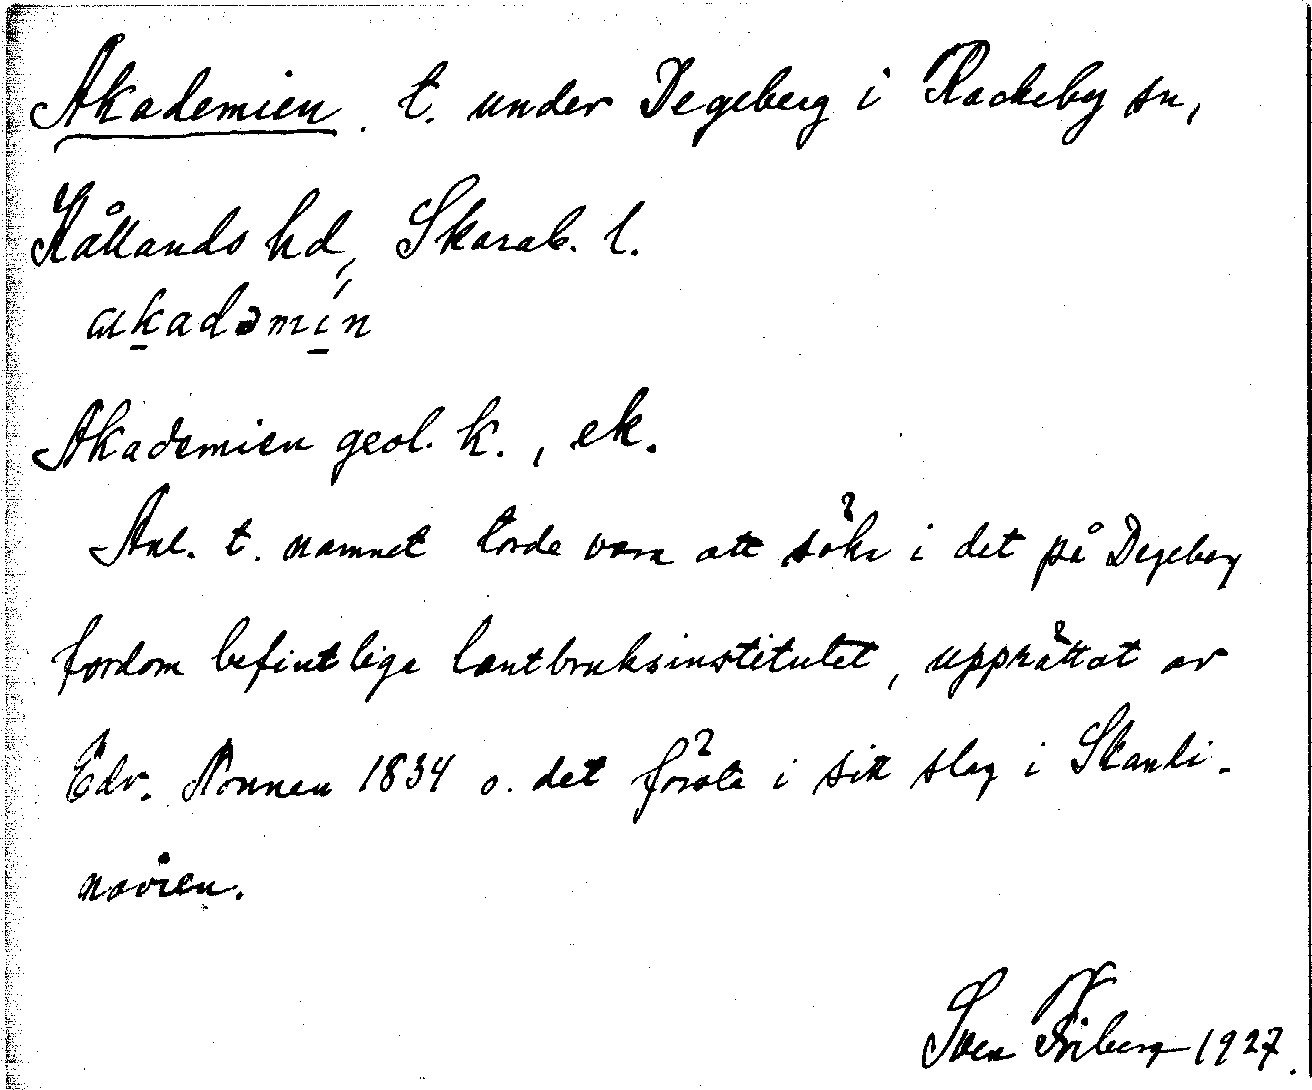 Akademien. t. under Degeberg i Rackeby sn,
Kållands hd, Skarab. l.
akadəmín
Akademien geol. k., ek.
Anl. t. namnet torde vara att söka i det på Degeberg
fordom befintliga lantbruksinstitutet, upprättat av
Edv. Nonnen 1834 o. det första i sitt slag i Skandi-
navien.
Sven Friberg 1927.